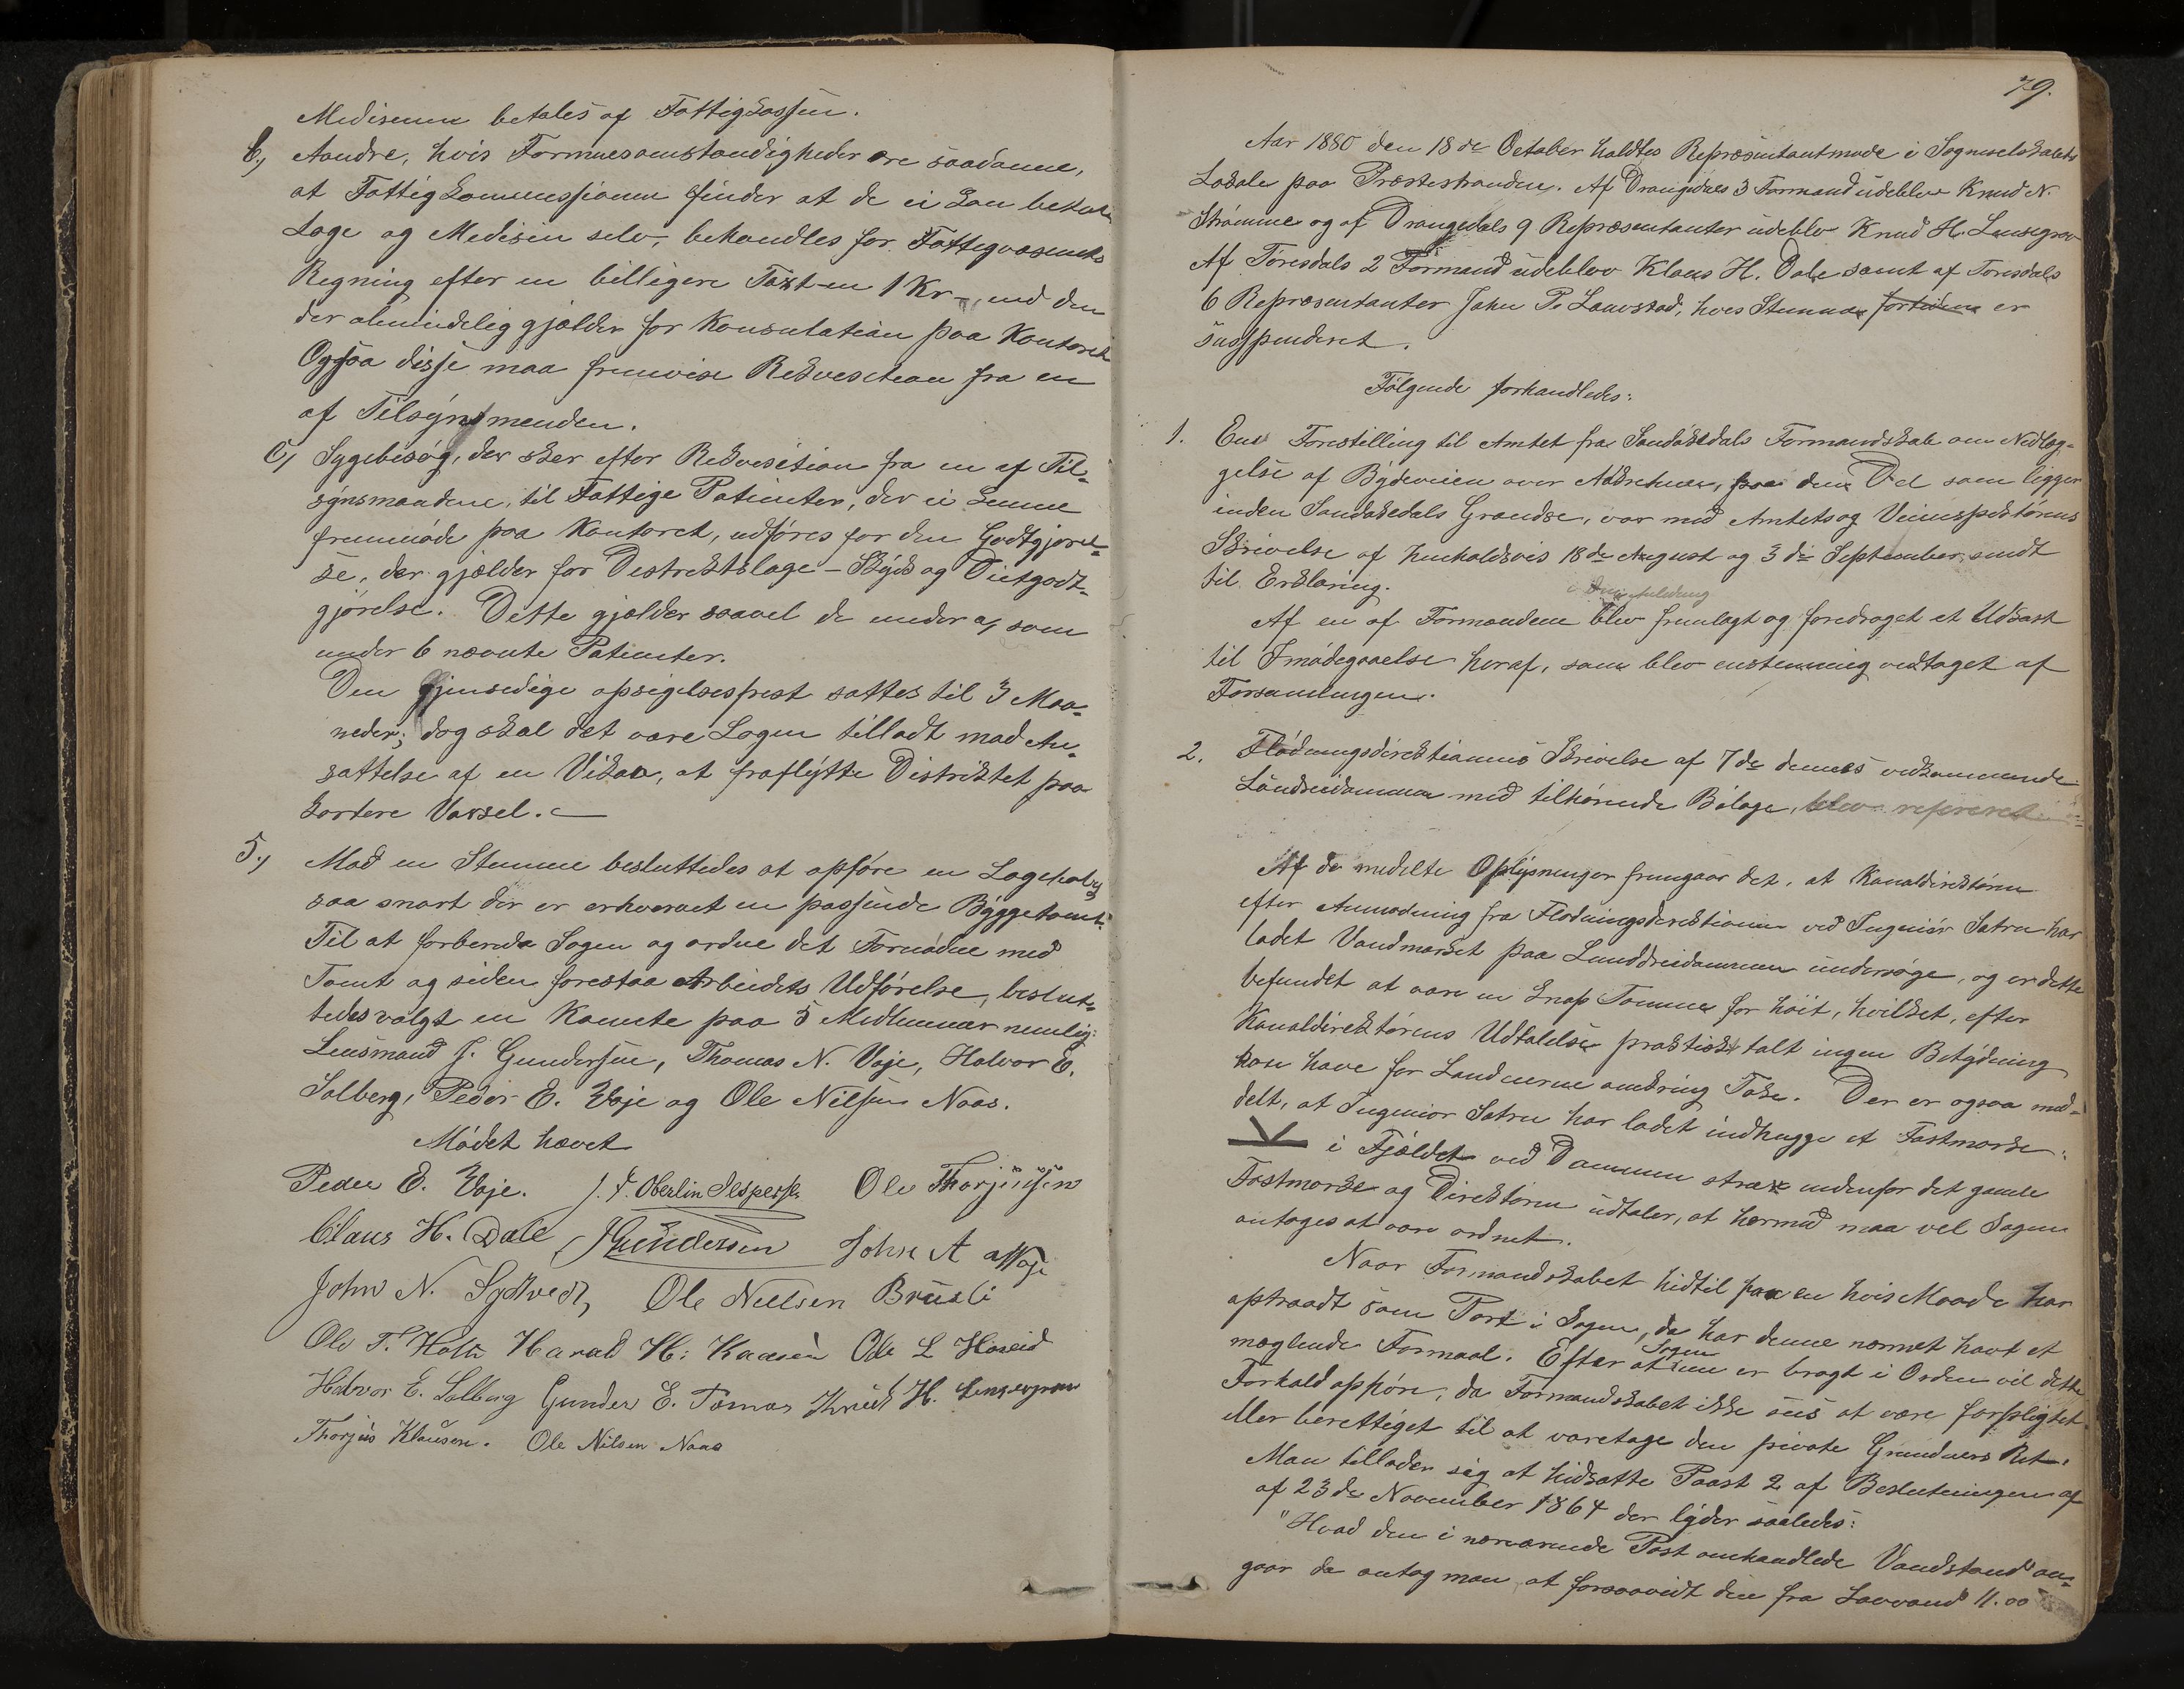 Medisenen betales af Fattigkassen.
b., Aandre, hvis Formuesomstændigheder ere saadanne,
at Fattigkommenssionen finder at de ei kan betale
Læge og Medisin selv, behandles for Fattigvæsenets
Regning efter en billigere Taxt en 1 Kr end den
der almindelig gjælder for Konsulation paa Kontoret
Ogsaa disse maa fremvise Rekvesition fra en
af Tilsynsmænden.
C, Sygebesøg, der sker efter Rekvisition fra en af Til-
synsmændene, til Fattige Patienter, der ei kunne
fremmøde paa Kontoret, udføres for den Godtgjørel-
se, der gjælder for Destrektslæge-Skyds og Dietgodt-
gjørelse. Dette gjælder saavel de under a, som
under b nævnte Patienter.
Den gjensedige opsigelsesfrest sættes til 3 Maa-
neder; dog skal det være Lægen tilladt mod An-
sættelse af en Vikar, at fraflytte Distriktet paa
kortere Varsel.
5., Mod en Stemme besluttedes at opføre en Lægebolig
saa snart der er erhvervet en passende Byggetomt.
Til at forberede Sagen og ordne det Fornødne med
Tomt og siden forestaa Arbeidets Udførelse, beslut-
tedes valgt en Komete paa 5 Medlemmer nemlig:
Lensmand J. Gundersen, Thomas N. Voje, Halvor E.
Solberg, Peder E. Voje og Ole Nilsen Naas.
Mødet hævet
Peder E. Voje. J. F. Oberlin Jespersen Ole Thorjussen
Claus H. Dale J Gundersen John A Voje
John N. Sydtvedt, Ole Nielsen Brusli
Ole T. Holte Harald H: Kaasen Ole L Hoseid
Halvor E. Solberg Gunder E. Tømas Knud H. Lensegrav
Thorjus Klausen. Ole Nilsen Naas
79.
Aar 1880 den 18de October holdtes Repræsentantmøde i Sogneselskabets
Lokale paa Præstestranden. Af Drangedals 3 Formænd udeblev Knud N.
Strømme og af Drangedals 9 Repræsentanter udeblev Knud H. Lensegrav
Af Tørresdals 2 Formænd udeblev Klaus H. Dale samt af Tørresdals
6 Repræsentanter John P. Lauvstad, hves Stemme er
suspenderet.
Følgende forhandledes:
1. Ens Forestilling til Amtet fra Sandøkedals Formandskab om Nedlæg-
gelse af Bygdeveien over paa den Del som ligger
inden Sandøkedals Grændse, var med Amtets og Veiinspektørens
Skrivelse af henholdsvis 18de August og 3die September sendt
til Erklæring.
i den Anledning
Af en af Formændene blev fremlagt og foredraget et Udkast
til Imødegaaelse heraf, som blev enstemmig vedtaget af
Forsamlingen.
2. Flødningsdirektionens Skrivelse af 7de dennes vedkommende
Lundreidammen med tilhørende Bilage, blev refereret
Af de meddelte Oplysninger fremgaar det, at Kanaldirektøren
efter Anmodning fra Flødningsdirektionen ved Ingeniør Sætren har
ladet Vandmærket paa Lunddreidammen undersøge, og er dette
befundet at være en knap Tomme for høit, hvilket, efter
Kanaldirektørens Udtalelse praktiskt talt ingen Betydning
kan have for Landeierne omkring Toke. Der er ogsaa med-
delt, at Ingeniør Sætren har ladet indhugge et Fastmærke:
i Fjældet ved Dammen strax nedenfor det gamle
Fastmærke og Direktøren udtaler, at hermed maa vel Sagen
antages at være ordnet.
Naar Formandskabet hidtil paa en hvis Maade har
optraadt som Part i Sagen, da har denne nærmest havt et
mæglende Formaal. Efter at Sagen nu er bragt i Orden vil dette
Forhold ophøre, da Formandskabet ikke sees at være forpligtet
eller berettiget til at varetage den private Grundeiers Ret.
Man tillader sig at hidsætte Paast 2 af Beslutningen af
af 23de November 1864 der lyder saaledes:
"Hvad den i nærværende Post omhandlede Vandstand an-
gaar da antog man at forsaavidt den fra Lavvand 11.00